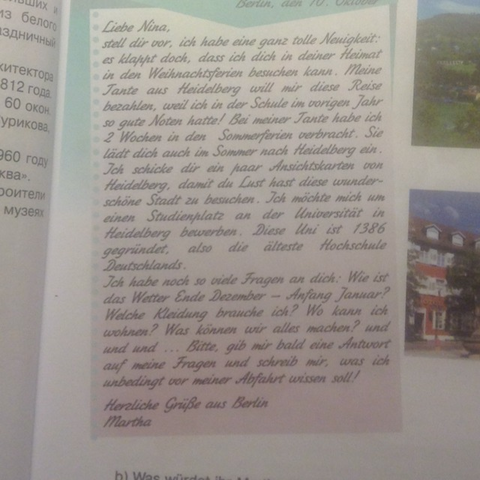 Berlin, den 10. Oktober
Liebe Nina,
stell dir vor, ich habe eine ganz tolle Neuigkeit:
es klappt doch, dass ich dich in deiner Heimat
in den Weihnachtsferien besuchen kann. Meine
Tante aus Heidelberg will mir diese Reise
bezahlen, weil ich in der Schule im vorigen Jahr
so gute Noten hatte! Bei meiner Tante habe ich
2 Wochen in den Sommerferien verbracht. Sie
lädt dich auch im Sommer nach Heidelberg ein.
Ich schicke dir ein paar Ansichtskarten von
Heidelberg, damit du Lust hast diese wunder-
schöne Stadt zu besuchen. Ich möchte mich um
einen Studienplatz an der Universität in
Heidelberg bewerben. Diese Uni ist 1386
gegründet, also die älteste Hochschule
Deutschlands.
Ich habe noch so viele Fragen an dich: Wie ist
das Wetter Ende Dezember – Anfang Januar?
Welche Kleidung brauche ich? Wo kann ich
wohnen? Was können wir alles machen? und
und und ... Bitte, gib mir bald eine Antwort
auf meine Fragen und schreib mir, was ich
unbedingt vor meiner Abfahrt wissen soll!
Herzliche Grüße aus Berlin
Martha
из белого
812 года
60 окон.
960 году
музеях
b) Was würdet ihr